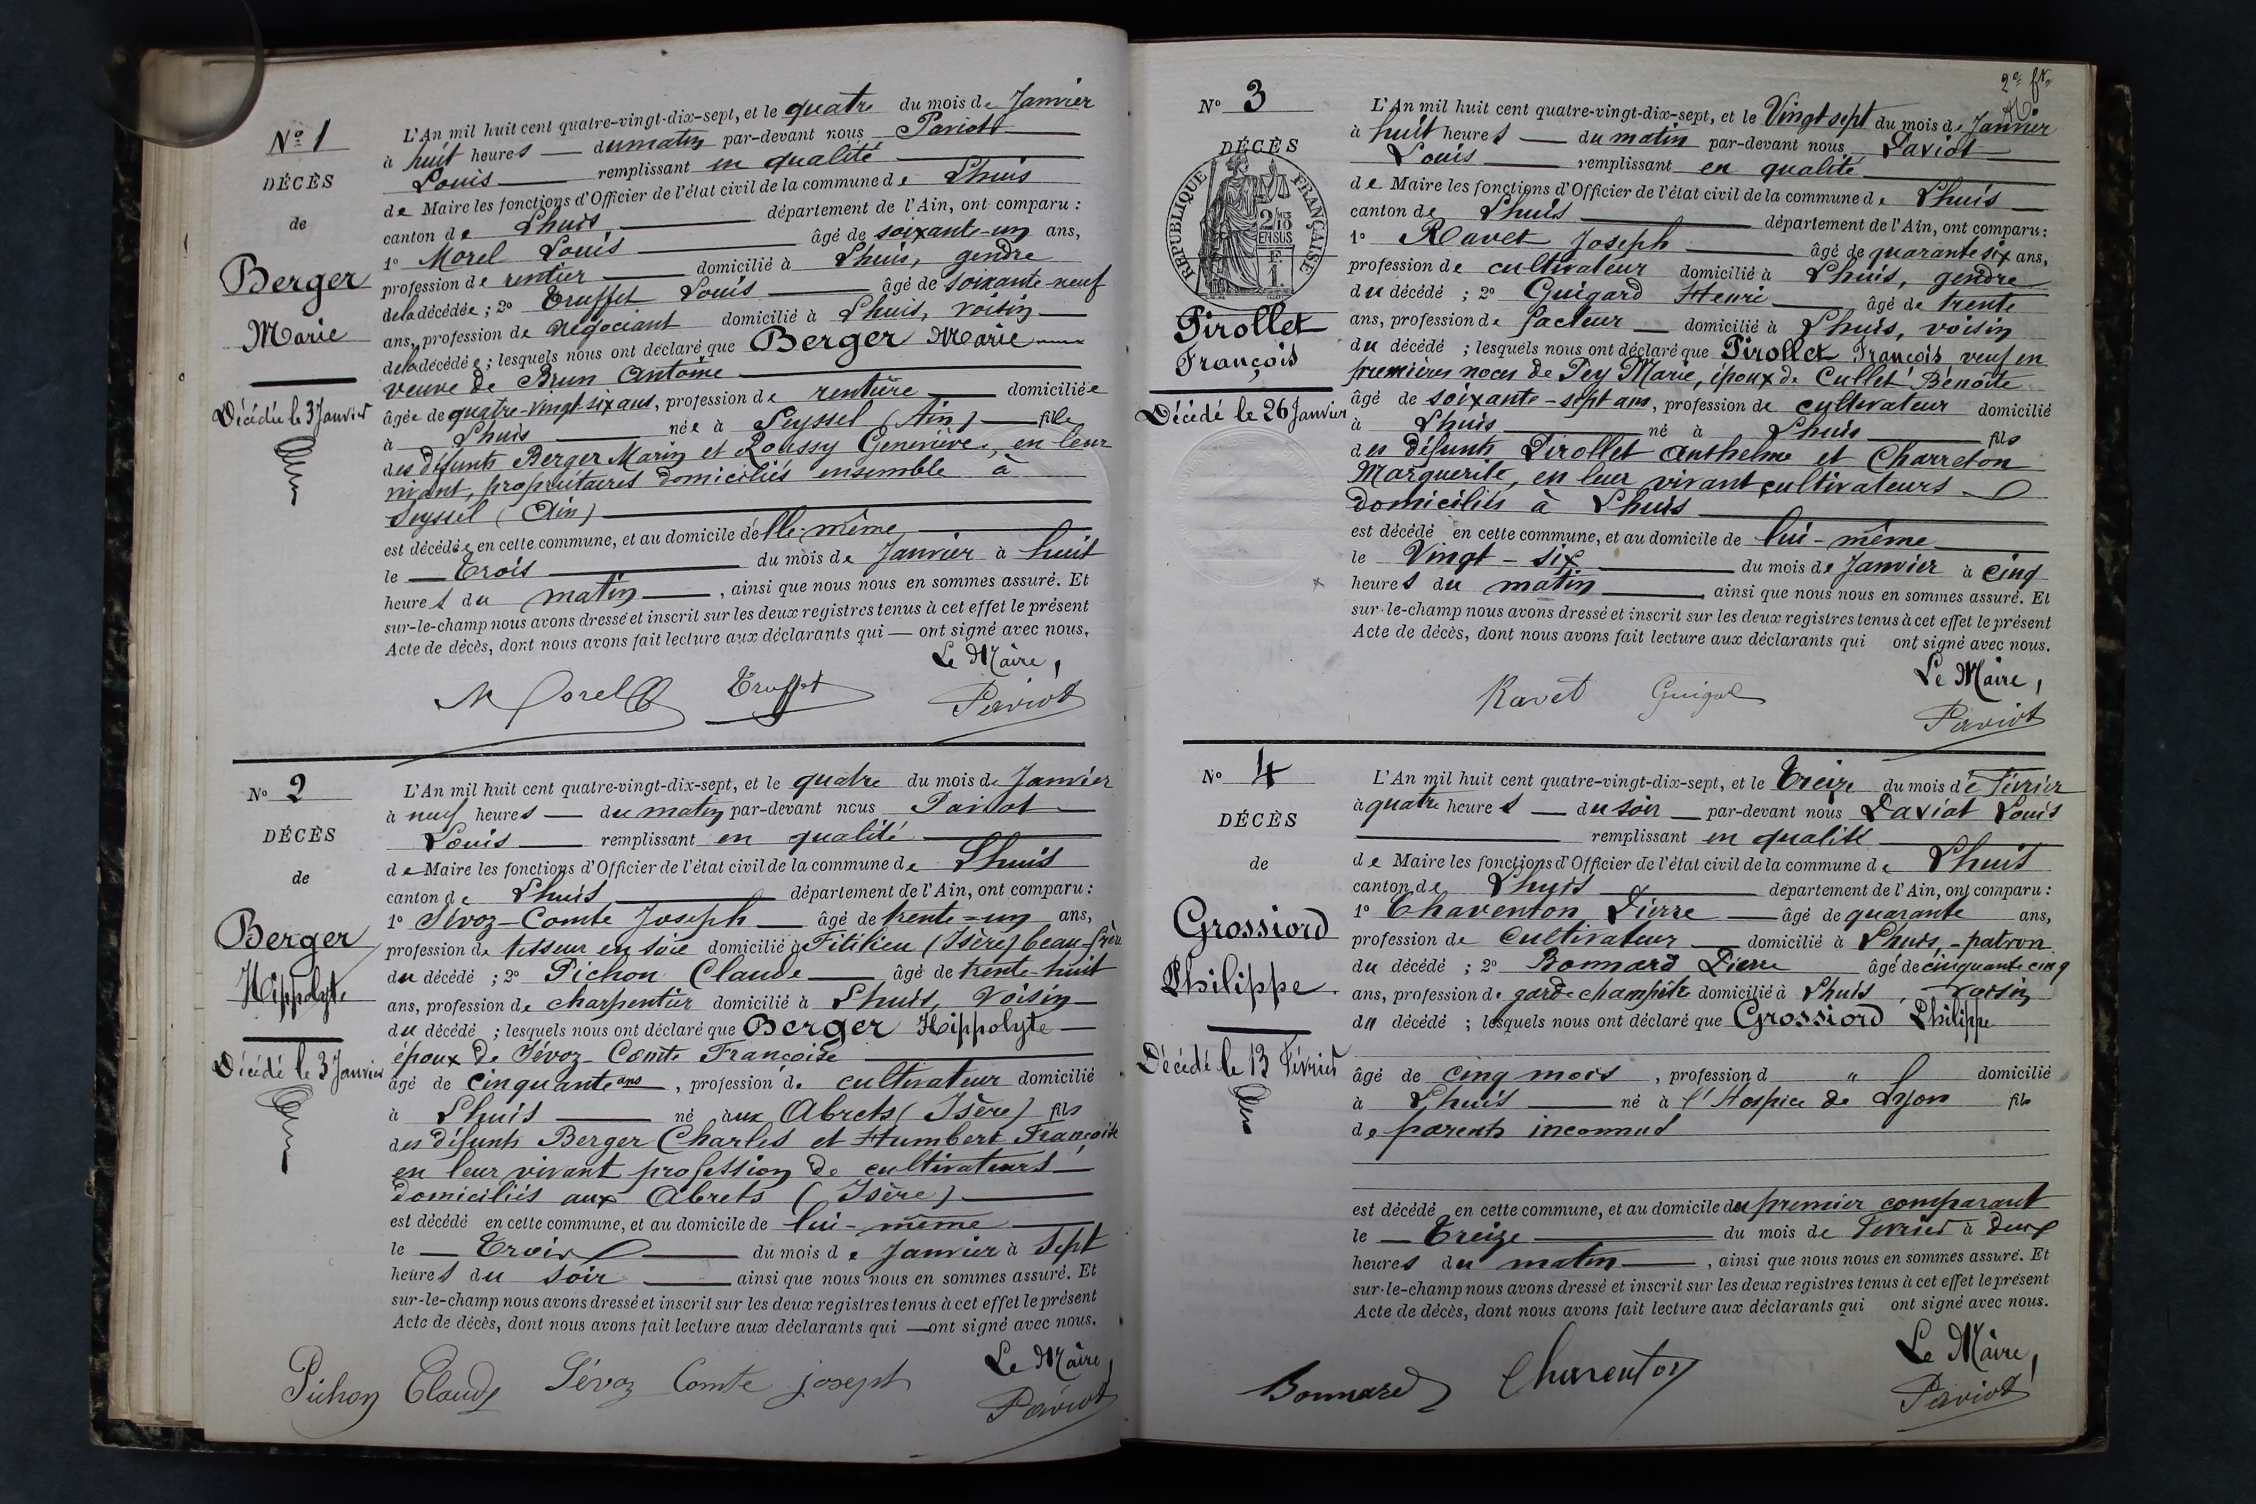 N° 1
DÉCÈS
de
Berger
Marie
Décédée le 3 Janvier
L'An mil huit cent quatre-vingt-dix-sept, et le quatre du mois de Janvier
à huit heures du matin par-devant nous Paviot
Louis remplissant en qualité
de Maire les fonctions d'Officier de l'état civil de la commune de Lhuis
canton de Lhuis département de l'Ain, ont comparu :
1° Morel Louis âgé de soixante-un ans,
profession de rentier domicilié à Lhuis, gendre
de la décédée ; 2° Truffet Louis âgé de soixante-neuf
ans, profession de négociant domicilié à Lhuis, voisin
de la décédée ; lesquels nous ont déclaré que Berger Marie
veuve de Brun Antoine
âgée de quatre-vingt-six ans, profession de rentière domiciliée
à Lhuis née à Seyssel (Ain) fille
des défunts Berger Marin et Roussy Geneviève, en leur
vivant, propriétaires domiciliés ensemble à
Seyssel (Ain)
est décédée en cette commune, et au domicile d'elle-même
le Trois du mois de Janvier à huit
heures du matin, ainsi que nous nous en sommes assuré. Et
sur-le-champ nous avons dressé et inscrit sur les deux registres tenus à cet effet le présent
Acte de décès, dont nous avons fait lecture aux déclarants qui ont signé avec nous.
Le Maire,
Morel Truffet Paviot
N° 2
DÉCÈS
de
Berger
Hippolyte
Décédé le 3 Janvier
L'An mil huit cent quatre-vingt-dix-sept, et le quatre du mois de Janvier
à neuf heures du matin par-devant nous Paviot
Louis remplissant en qualité
de Maire les fonctions d'Officier de l'état civil de la commune de Lhuis
canton de Lhuis département de l'Ain, ont comparu :
1° Sévoz-Comte Joseph âgé de trente-un ans,
profession de tisseur en soie domicilié à Fitilieu (Isère) beau-frère
du décédé ; 2° Pichon Claude âgé de trente-huit
ans, profession de charpentier domicilié à Lhuis, Voisin
du décédé ; lesquels nous ont déclaré que Berger Hippolyte
époux de Sévoz-Comte Françoise
âgé de cinquante ans, profession de cultivateur domicilié
à Lhuis né aux Abrets (Isère) fils
des défunts Berger Charles et Humbert Françoise
en leur vivant profession de cultivateurs
domiciliés aux Abrets (Isère)
est décédé en cette commune, et au domicile de lui-même
le Trois du mois de Janvier à Sept
heures du soir ainsi que nous nous en sommes assuré. Et
sur-le-champ nous avons dressé et inscrit sur les deux registres tenus à cet effet le présent
Acte de décès, dont nous avons fait lecture aux déclarants qui ont signé avec nous.
Le Maire,
Pichon Claude Sévoz Comte joseph Paviot
2e ft.
N° 3
DÉCÈS
RÉPUBLIQUE FRANÇAISE
2/10
EN SUS
F.
1.
Pirollet
François
Décédé le 26 Janvier
L'An mil huit cent quatre-vingt-dix-sept, et le Vingt sept du mois de Janvier
à huit heures du matin par-devant nous Paviot
Louis remplissant en qualité
de Maire les fonctions d'Officier de l'état civil de la commune de Lhuis
canton de Lhuis département de l'Ain, ont comparu :
1° Ravet Joseph âgé de quarante six ans,
profession de cultivateur domicilié à Lhuis, gendre
du décédé ; 2° Guigard Henri âgé de trente
ans, profession de facteur domicilié à Lhuis, voisin
du décédé ; lesquels nous ont déclaré que Pirollet François veuf en
premières noces de Pey Marie, époux de Cullet Benoîte
âgé de soixante-sept ans, profession de cultivateur domicilié
à Lhuis né à Lhuis fils
des défunts Pirollet Anthelme et Charreton
Marguerite, en leur vivant cultivateurs
domiciliés à Lhuis
est décédé en cette commune, et au domicile de lui-même
le Vingt-six du mois de Janvier à cinq
heures du matin, ainsi que nous nous en sommes assuré. Et
sur-le-champ nous avons dressé et inscrit sur les deux registres tenus à cet effet le présent
Acte de décès, dont nous avons fait lecture aux déclarants qui ont signé avec nous.
Le Maire,
Ravet Paviot
N° 4
DÉCÈS
de
Grossiord
Philippe
Décédé le 13 Février
L'An mil huit cent quatre-vingt-dix-sept, et le Treize du mois de Février
à quatre heures du soir par-devant nous Paviot Louis
remplissant en qualité
de Maire les fonctions d'Officier de l'état civil de la commune de Lhuis
canton de Lhuis département de l'Ain, ont comparu :
1° Charenton Pierre âgé de quarante ans,
profession de Cultivateur domicilié à Lhuis - patron
du décédé ; 2° Bonnard Pierre âgé de cinquante cinq
ans, profession de garde champêtre domicilié à Lhuis, Voisin
du décédé ; lesquels nous ont déclaré que Grossiord Philippe
âgé de cinq mois, profession d " domicilié
à Lhuis né à l'Hospice de Lyon fils
de parents inconnus
est décédé en cette commune, et au domicile du premier comparant
le Treize du mois de Février à deux
heures du matin, ainsi que nous nous en sommes assuré. Et
sur-le-champ nous avons dressé et inscrit sur les deux registres tenus à cet effet le présent
Acte de décès, dont nous avons fait lecture aux déclarants qui ont signé avec nous.
Le Maire,
Bonnard Charenton Paviot